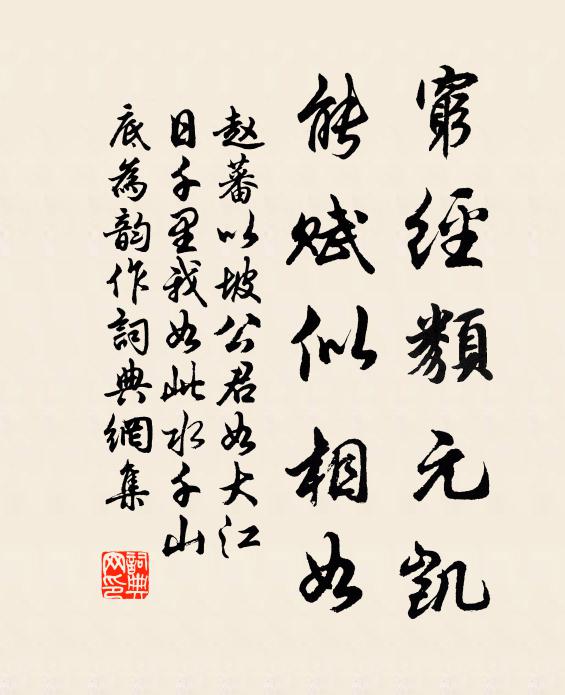 窮經類元凱
能賦似相如
赵蕃以坡公君如大江
日千里我如此水千山
底為韵作詞典網集
詞典网印